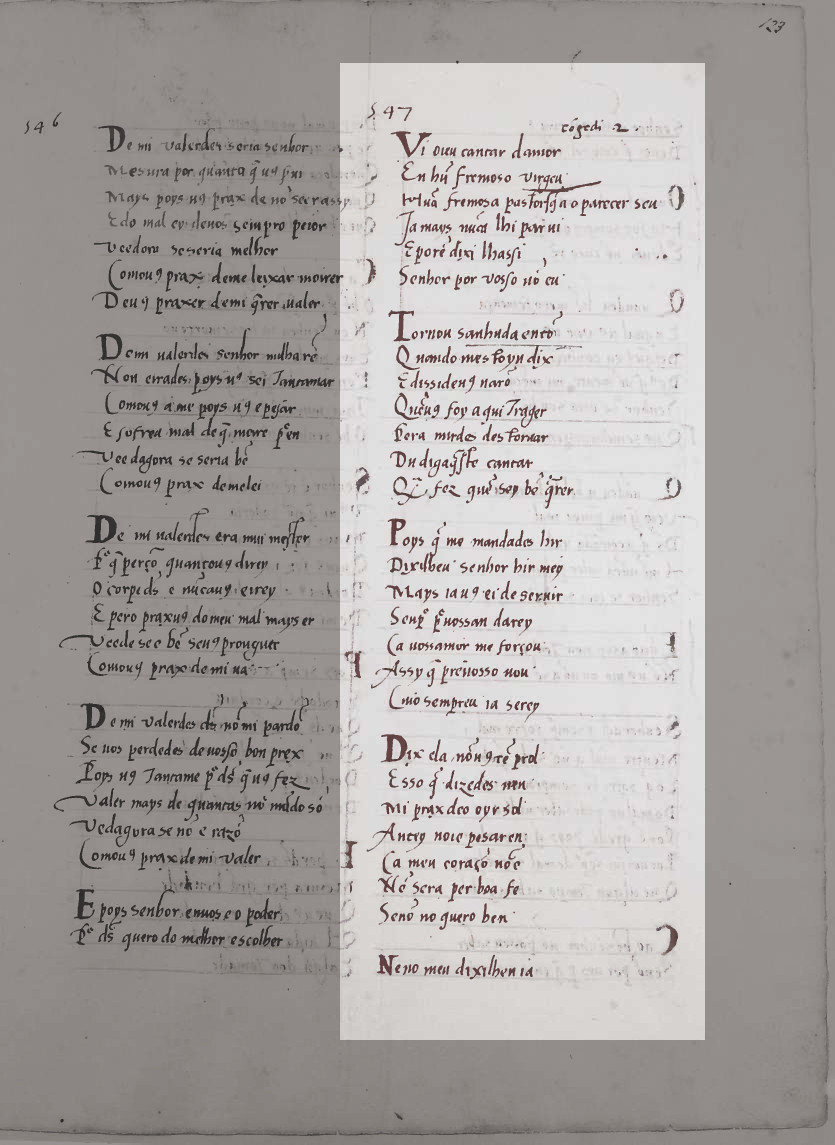 123
546
De mi valerdes seria senhor
Mesura por quanto q̄ uꝯ
Mays poys uꝯ prax de nō seer assy
E do mal ey de uos sempro peior
Veedora se seria melhor
Comouꝯ prax deme leixar moirer
Deuꝯ praxer demi q̄rer ualer
Demi ualerdes senhor
Non errades poys uꝯ sei
Comouꝯ a me poys uꝯ e pesar
E sofreu mal de q̄ moire
Veedagora se seria bē
Comouꝯ prax demelei
De mi ualerdes era mui mester
P̄ q̄ perço quantouꝯ direy
O corpe dꝯ e nūcauꝯ eirey
E pero praxuꝯ do meu mal mays er
Veede se e bē seuꝯ prouguer
Comouꝯ prax de mi ua
De mi valerdes ds̄ nō mi pardō
Se uos perdedes de uosso bon prex
Poys uꝯ tantame p̄ ds̄ q̄ uꝯ fez
Valer mays de quantas nō mūdo só
Vedagora se nō e razō
Comouꝯ prax de mi valer
E poys senhor en uos e o poder
P̄ ds̄ quero do melhor escolher
547
cōgedi 2
Vi oieu cantar damor
En hū fremoso virgeu
hūa fremosa pastor q̄ a o parecer seu
Ja mays nūca lhi par ui
E porē dixi lhassi
Senhor por vosso uō eu
Tornou sanhuda entō
Quando mest oyu dix
E dissideuꝯ narō
Quē uꝯ foy aqui trager
Pera mirdes destoruar
Du digaqste cantar
Q̄ fez quē sey bē q̄rer
Poys q̄ me mandades hir
Dixilheu senhor hir mey
Mays ia uꝯ ei de seruir
Senp̄ p̄ uossan darey
Ca uossamor me forçou
Assy q̄ per uosso uou
Cuio sempreu ia serey
Dix ela nō uꝯ tē prol
Esso q̄ dizedes nen
Mi prax de o oyr sol
Antey noie pesaren
Ca meu coraçō nōe
Nē sera per boa fe
Senō no quero ben
Neno meu dixilhen ia